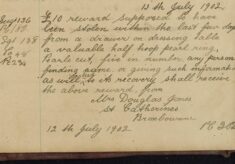 13th July 1902
£10 reward supposed to have
been stolen within the last few days
from a drawer in dressing table
a valuable half hoop pearl ring,
Pearls cut, five in number, any person
finding same or giving such information
as will lead to its recovery shall receive
the above reward from
Mrs Douglas Jones
St Catherines
Broxbourne
12th July 1902.